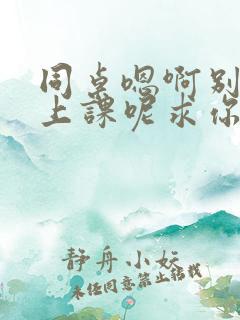 同桌嗯啊别
上課呢求你
静舟小妖
未经同意禁止转载